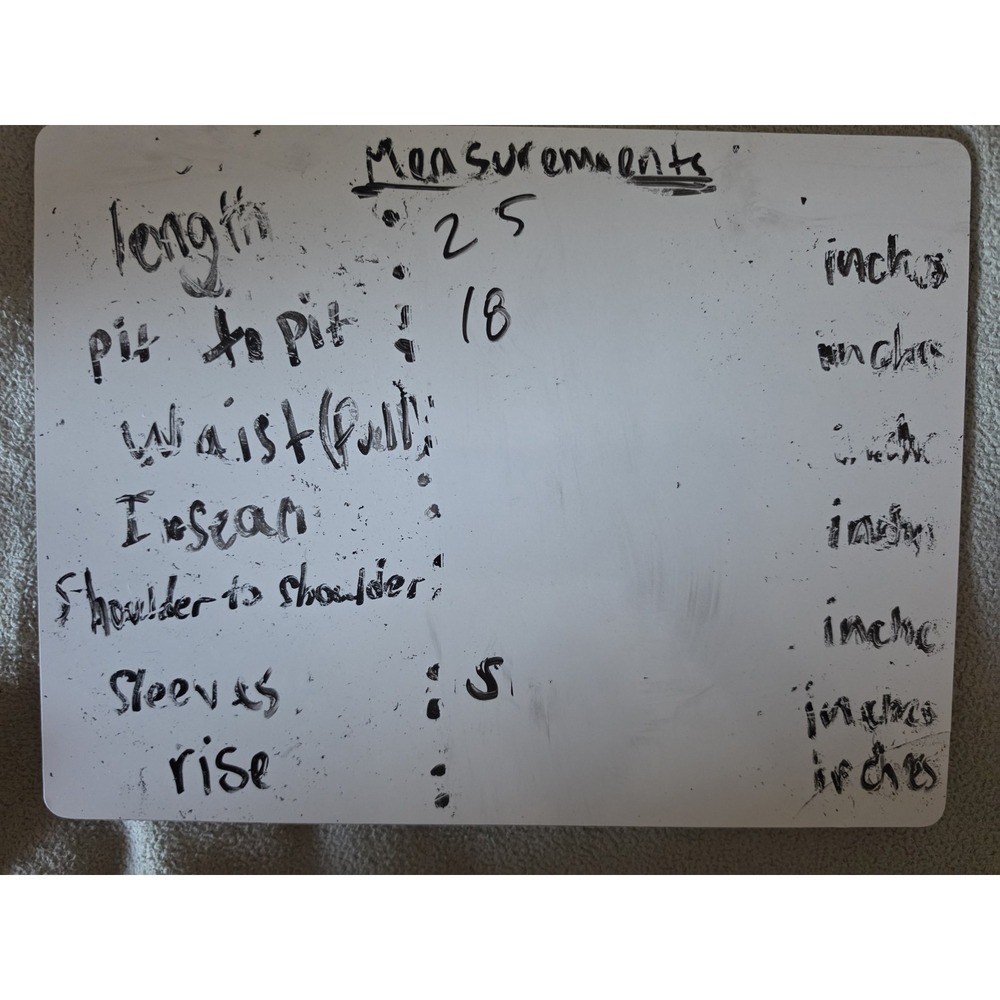 Measurements
length : 25 inches
pit to pit : 18 inches
Waist (full) : inches
Inseam : inches
Shoulder to shoulder : inches
Sleeves : 5 inches
rise : inches